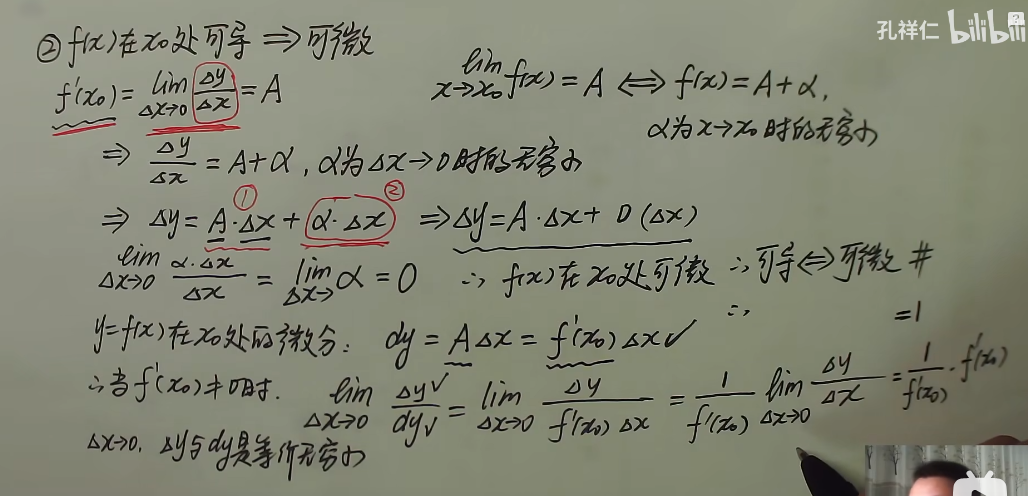 孔祥仁 bilibili
② f(x)在x₀处可导 ⟹ 可微
f'(x₀) = lim_{Δx→0} Δy/Δx = A
lim_{x→x₀} f(x) = A ⟺ f(x) = A + α,
α为x→x₀时的无穷小
⟹ Δy/Δx = A + α, α为Δx→0时的无穷小
① ②
⟹ Δy = A·Δx + α·Δx ⟹ Δy = A·Δx + o(Δx)
lim_{Δx→0} α·Δx/Δx = lim_{Δx→} α = 0 ∴ f(x)在x₀处可微 ∴ 可导⟺可微 #
∴ =1
y=f(x)在x₀处的微分: dy = AΔx = f'(x₀)Δx✓
∴当f'(x₀)≠0时. lim_{Δx→0} Δy✓/dy✓ = lim_{Δx→0} Δy/f'(x₀)Δx = 1/f'(x₀) lim_{Δx→0} Δy/Δx = 1/f'(x₀)·f'(x₀)
Δx→0, Δy与dy是等价无穷小